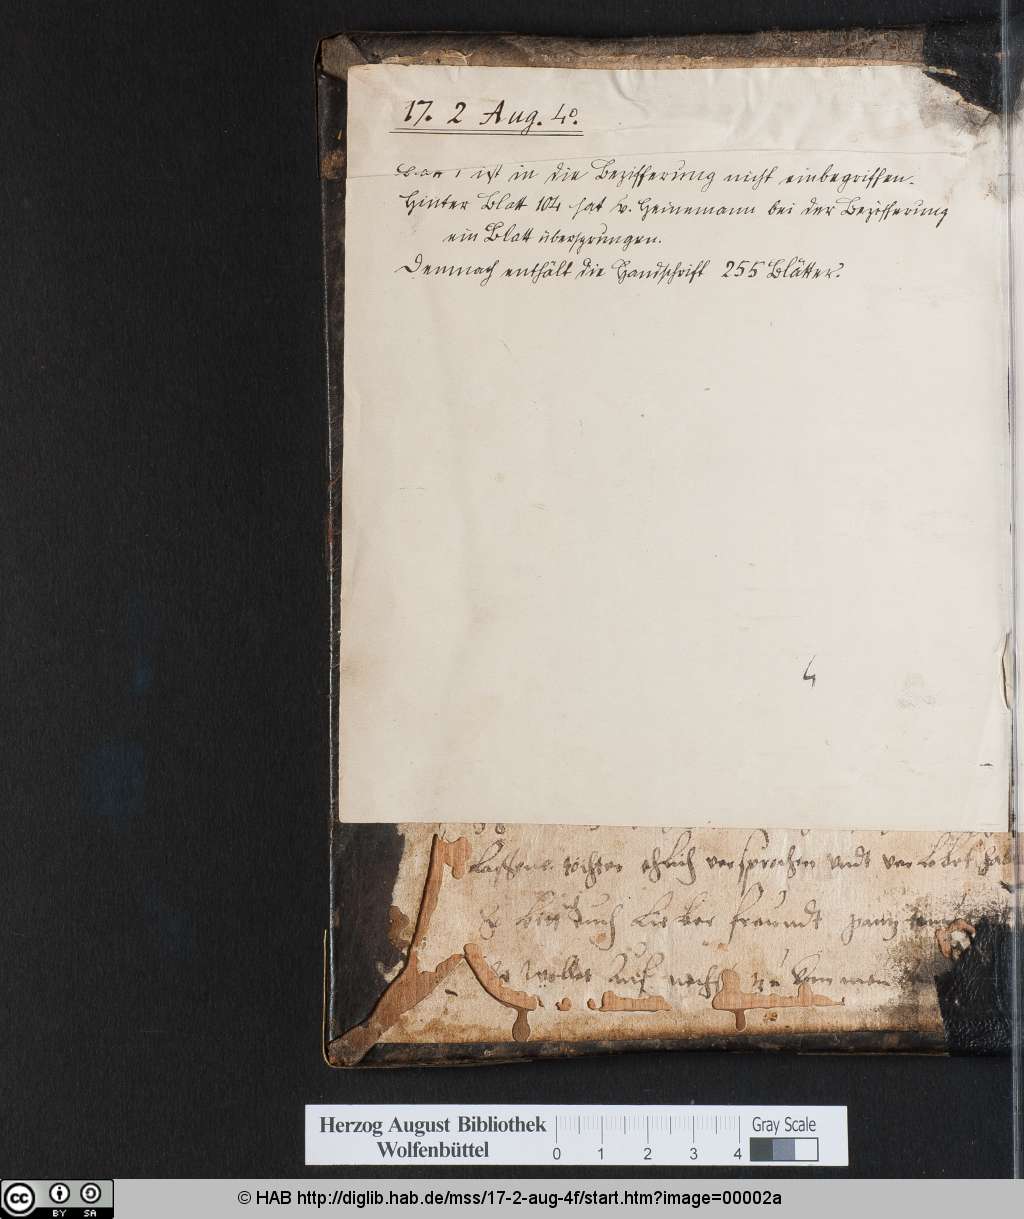 17. 2 Aug. 4o.
Blatt 1 ist in die Bezifferung nicht einbegriffen.
Hinter Blatt 104 hat v. Heinemann bei der Bezifferung
ein Blatt übersprungen.
Demnach enthält die Handschrift 255 Blätter.
4
tochter ehrlich versprochen undt
auch lieber freundt
wollet auf nechst zu
Herzog August Bibliothek
Wolfenbüttel
0 1 2 3 4
Gray Scale
cc BY SA
© HAB http://diglib.hab.de/mss/17-2-aug-4f/start.htm?image=00002a